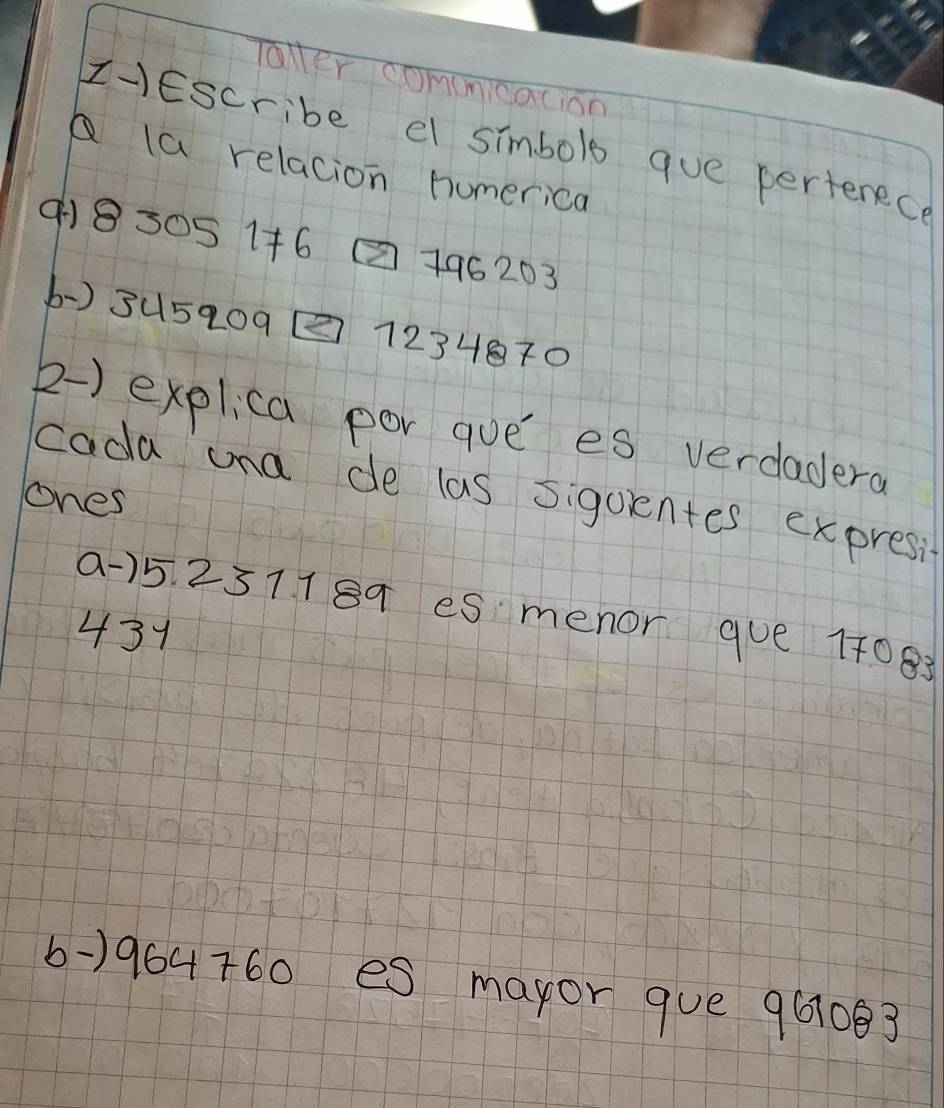 Taller comunicacion
1-) Escribe el símbolo que pertenece
a la relacion numerica
a-) 8305176 > 796203
b-) 345209 < 1234870
2-) explica por qué es verdadera
cada una de las siguientes expresi-
ones
a-) 5.231.189 es menor que 17083
431
b-) 964760 es mayor que 961083